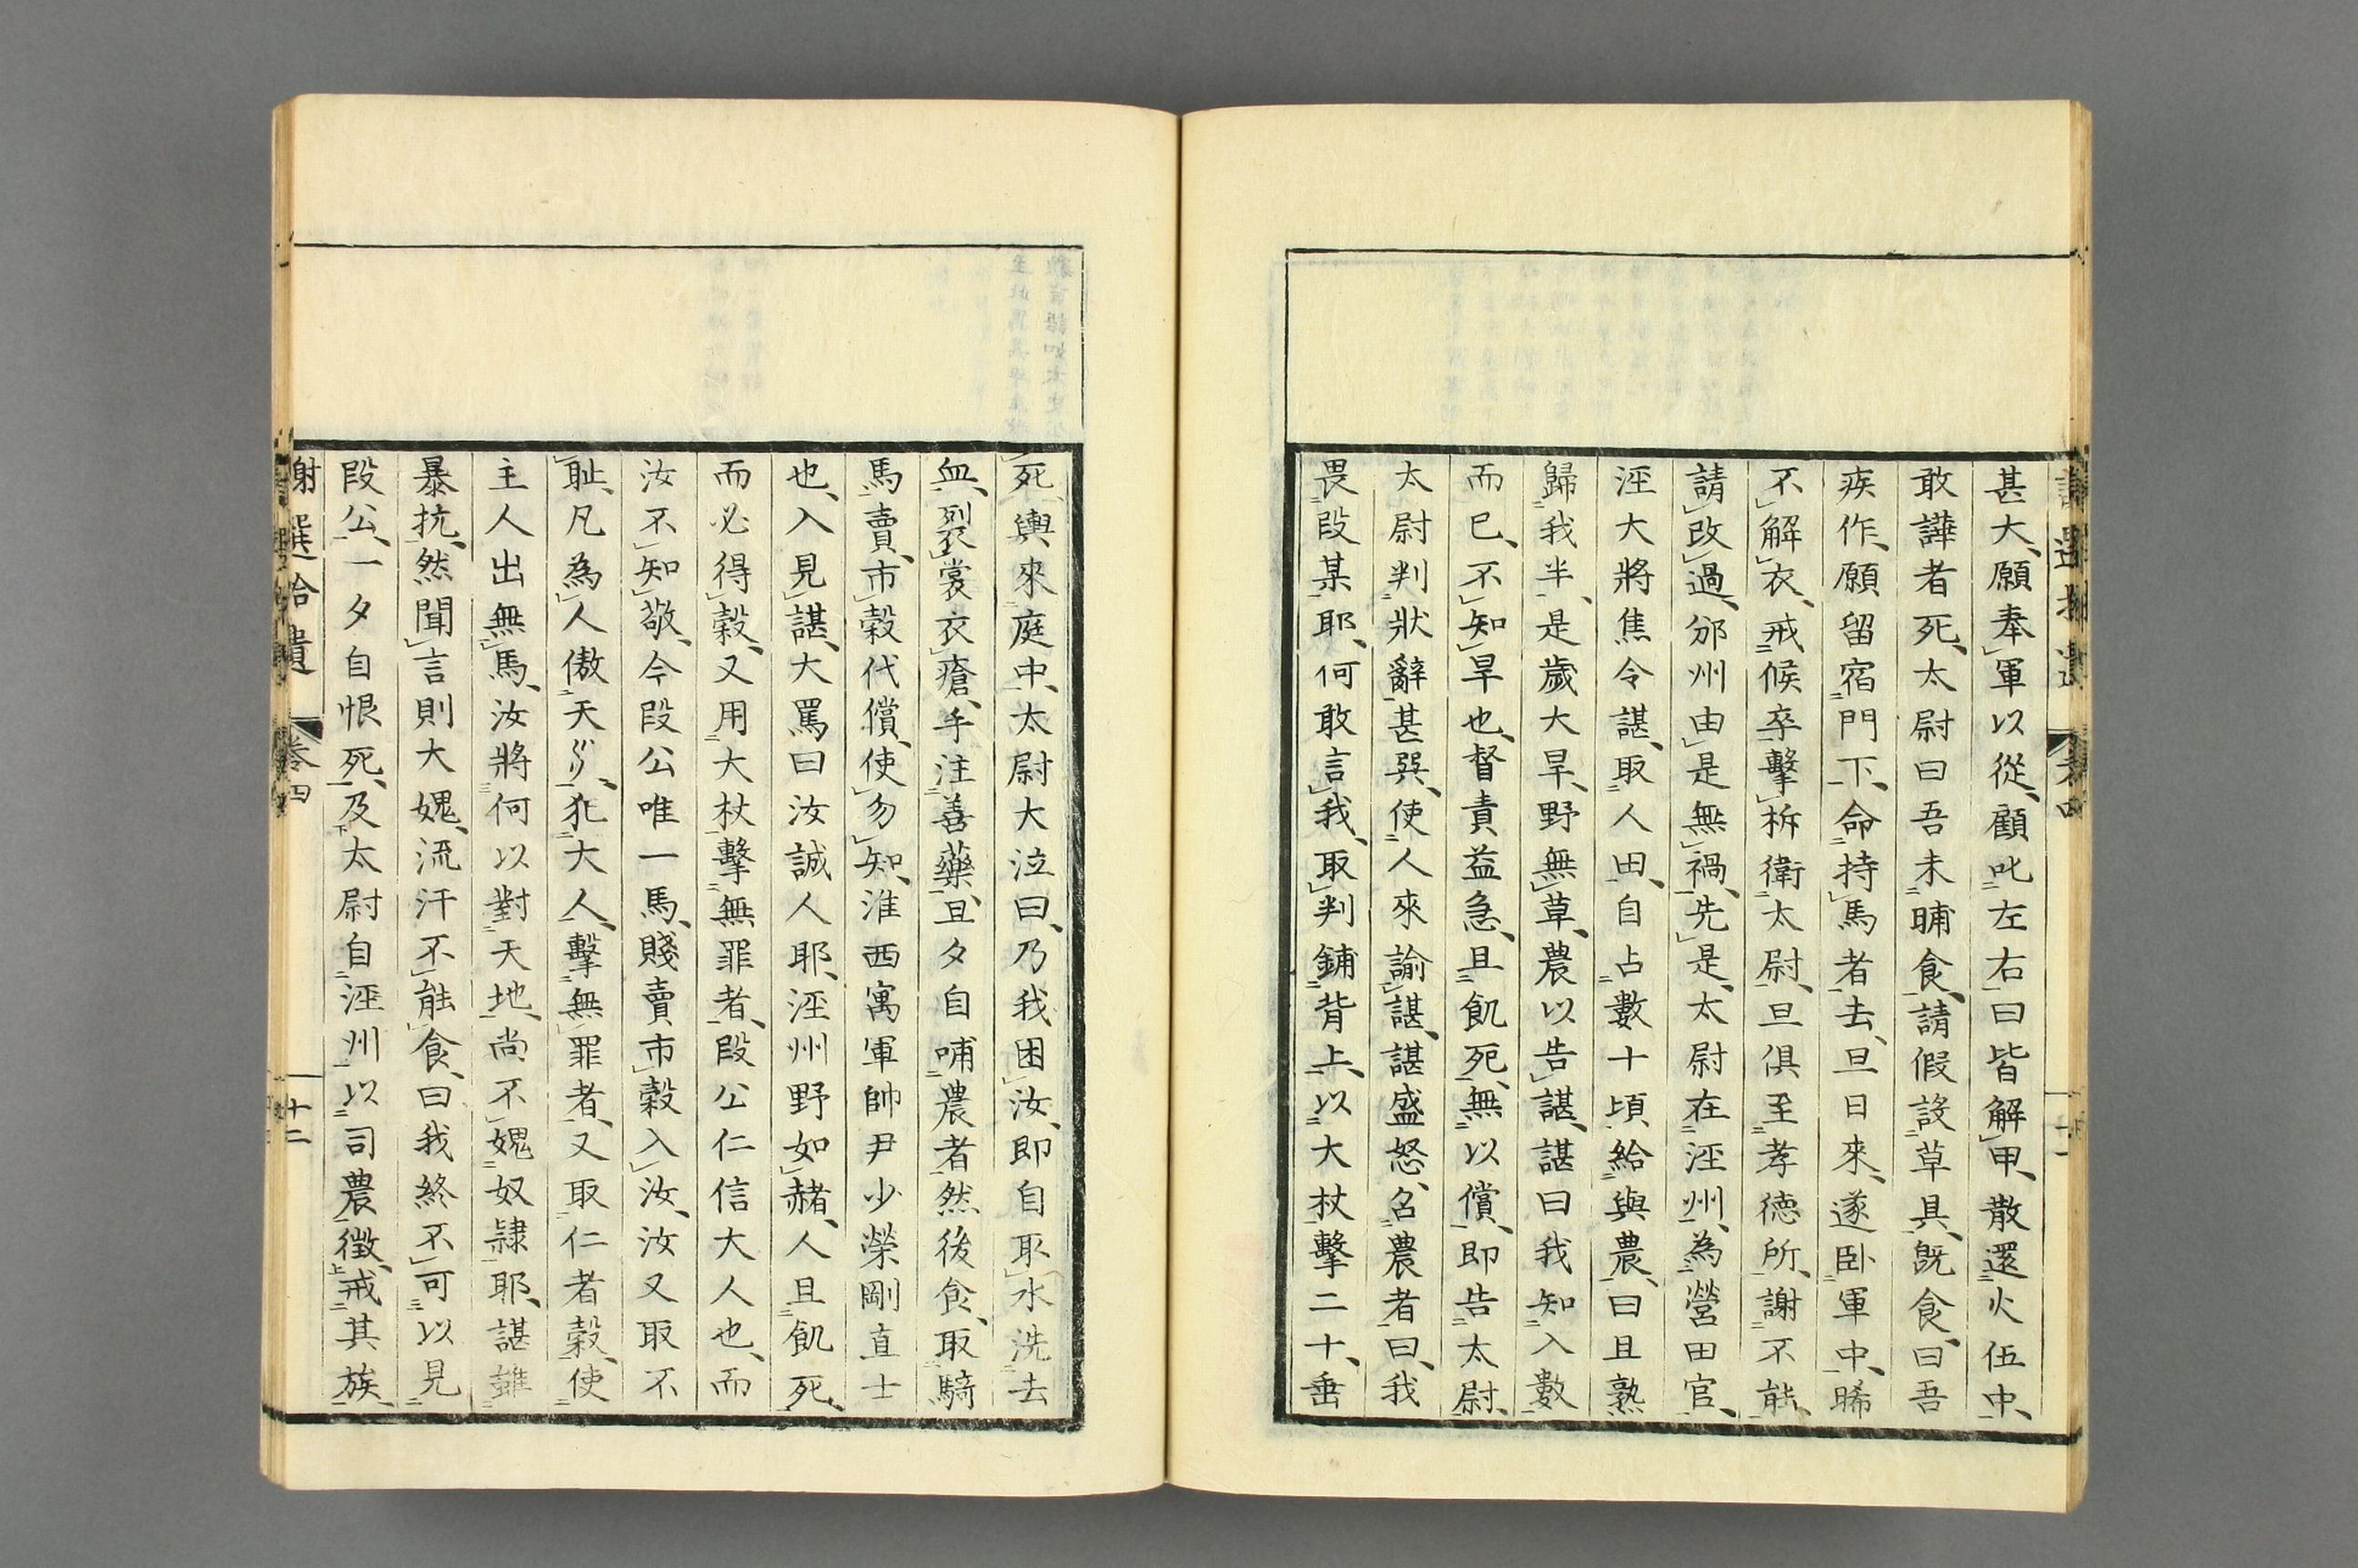 甚大、願奉軍以從、顧叱左右曰皆解甲、散還火伍中、
敢譁者死、太尉曰吾未晡食、請假設草具、既食、曰吾
疾作、願留宿門下、命持馬者去、旦日來、遂臥軍中、晞
不解衣、戒候卒擊柝衛太尉、旦俱至孝德所、謝不能、
請改過、邠州由是無禍、先是、太尉在涇州、為營田官、
涇大將焦令諶、取人田、自占數十頃給與農、曰且熟
歸我半、是歲大旱、野無草、農以告諶、諶曰我知入數
而已、不知旱也、督責益急、且飢死、無以償、即告太尉、
太尉判狀辭甚巽、使人來諭諶、諶盛怒、召農者曰、我
畏段某耶、何敢言我、取判鋪背上、以大杖擊二十、垂
死、輿來庭中、太尉大泣曰、乃我困汝、即自取水洗去
血、裂裳衣瘡、手注善藥、旦夕自哺農者、然後食、取騎
馬賣、市穀代償、使勿知、淮西寓軍帥尹少榮剛直士
也、入見諶、大罵曰汝誠人耶、涇州野如赭、人且飢死、
而必得穀、又用大杖擊無罪者、段公仁信大人也、而
汝不知敬、今段公唯一馬、賤賣市穀入汝、汝又取不
耻、凡為人傲天災、犯大人、擊無罪者、又取仁者穀、使
主人出無馬、汝將何以對天地、尚不媿奴隷耶、諶雖
暴抗、然聞言則大媿、流汗不能食、曰我終不可以見
段公、一夕自恨死、及太尉自涇州以司農徵、戒其族、
謝選拾遺 卷四 十二